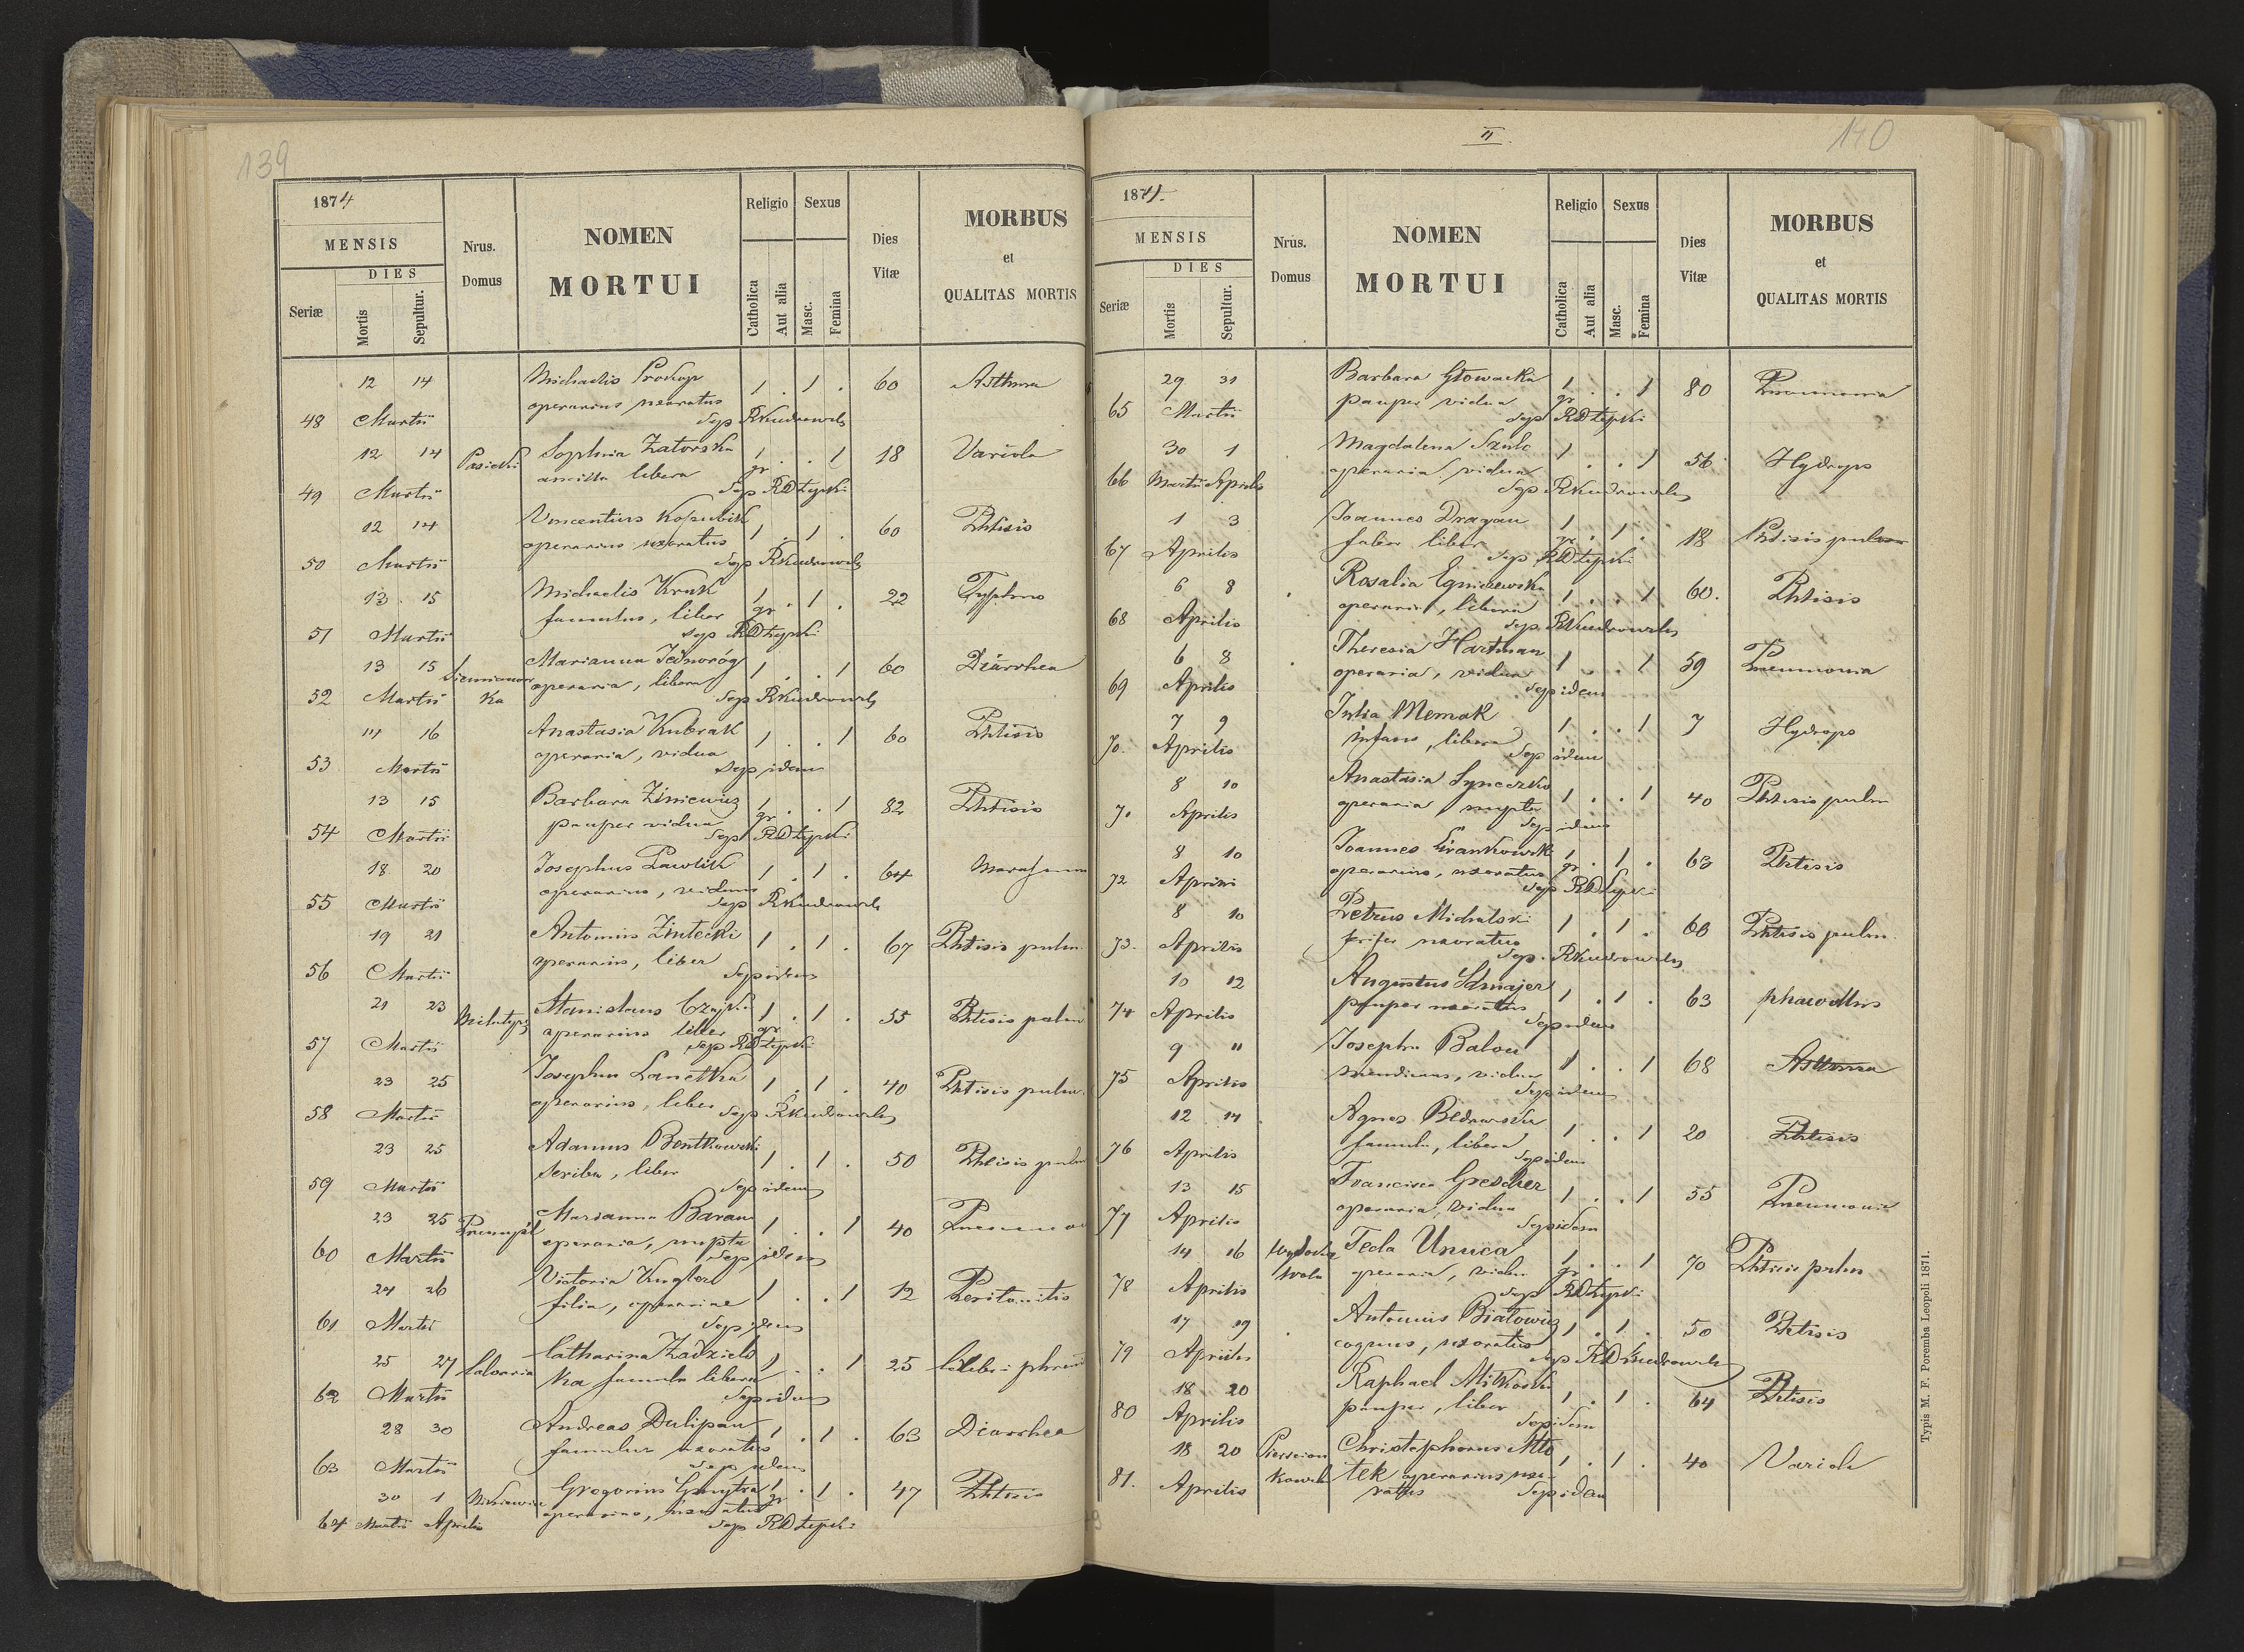 139
1874
MENSIS
DIES
Seriæ
Mortis
Sepultur.
Nrus.
Domus
NOMEN
MORTUI
Religio
Sexus
Catholica
Aut alia
Masc.
Femina
Dies
Vitæ
MORBUS
et
QUALITAS MORTIS
12 14 Michaelis Prokop 1 . 1 . 60 Asthma
operarius
48 Martii Sep
12 14 Sophia Zatorska 1 . . 1 18 Variola
ancilla libera gr
49 Martii Sep RD Łepki
12 14 Vincentius 1 . 1 . 60 Phtisis
operarius uxoratus
50 Martii Sep
13 15 Michaelis Kruk 1 . 1 . 22 Typhus
famulus, liber gr
51 Martii Sep RD Łepki
13 15 Marianna Jednoróg 1 . . 1 60 Diarrhea
operaria, libera
52 Martii Sep
14 16 Anastasia Kubrak 1 . . 1 60 Phtisis
operaria, vidua
53 Martii Sep idem
13 15 Barbara 1 . . 1 82 Phtisis
pauper vidua gr
54 Martii Sep RD Łepki
18 20 Josephus Pawlik 1 . 1 . 64
operarius, viduus
55 Martii Sep
19 21 Antonius 1 . 1 . 67 Phtisis pulm.
operarius, liber
56 Martii Sep idem
21 23 Stanislaus 1 . 1 . 55 Phtisis pulm
operarius liber gr
57 Martii Sep RD Łepki
23 25 Josephus 1 . 1 . 40 Phtisis pulm.
operarius, liber
58 Martii Sep
23 25 Adamus Bontkowski 1 . 1 . 50 Phtisis pulm
scriba, liber
59 Martii Sep idem
23 25 Marianna Baran 1 . . 1 40
operaria, nupta
60 Martii Sep idem
24 26 Victoria Kugler 1 . . 1 12 Peritonitis
filia, operariae
61 Martii Sep idem
25 27 Calvaria Catharina Zadziels 1 . . 1 25
ka famula libera
62 Martii Sep idem
28 30 Andreas Dulipan 1 . 1 . 63 Diarrhea
famulus uxoratus
63 Martii Sep idem
30 1 Gregorius 1 . 1 . 47 Phtisis
operarius, uxoratus gr
64 Martii Aprilis Sep RD Łepki
II
140
1874
MENSIS
DIES
Seriæ
Mortis
Sepultur.
Nrus.
Domus
NOMEN
MORTUI
Religio
Sexus
Catholica
Aut alia
Masc.
Femina
Dies
Vitæ
MORBUS
et
QUALITAS MORTIS
29 31 Barbara Głowacka 1 . . 1 80 Pneumonia
pauper vidua gr
65 Martii Sep RD Łepki
30 1 Magdalena Szulc 1 . . 1 56 Hydrops
operaria vidua
66 Martii Aprilis Sep
1 3 Joannes Dragan 1 . 1 . 18 Phtisis pulm
faber liber gr
67 Aprilis Sep RD Łepki
6 8 Rosalia 1 . . 1 60. Phtisis
operaria, libera
68 Aprilis Sep
6 8 Theresia Hartman 1 . . 1 59 Pneumonia
operaria, vidua
69 Aprilis Sep idem
7 9 Julia Memak 1 . . 1 7 Hydrops
infans, libera
70. Aprilis Sep idem
8 10 Anastasia 1 . . 1 40 Phtisis pulm
operaria nupta
Aprilis Sep idem
8 10 Joannes 1 . 1 . 63 Phtisis
operarius, uxoratus gr
72 Aprilis Sep RD Łepki
8 10 Petrus Michalski 1 . 1 . Phtisis pulm.
uxoratus
73. Aprilis Sep.
10 12 Augustus 1 . 1 . 63
pauper uxoratus
74 Aprilis Sep idem
9 11 Josepha Balon 1 . . 1 68 Asthma
mendicans, vidua
75 Aprilis Sep idem
12 14 Agnes 1 . . 1 20 Phtisis
famula, libera
76 Aprilis Sep idem
13 15 Francisca Grescher 1 . . 1 55 Pneumonia
operaria, vidua
77 Aprilis Sep idem
14 16 Tecla Unuca 1 . . 1 70 Phtisis pulm
Wola operaria, vidua gr
78 Aprilis Sep RD Łepki
17 19 Antonius Białowicz 1 . 1 . 50 Phtisis
coquus, uxoratus
79 Aprilis Sep
18 20 Raphael 1 . 1 . 64 Phtisis
pauper, liber
80 Aprilis Sep idem
18 20 Christophorus 1 . 1 . 40 Variola
tek operarius uxo-
81. Aprilis ratus Sep idem
Typis M. F. Poremba Leopoli 1871.